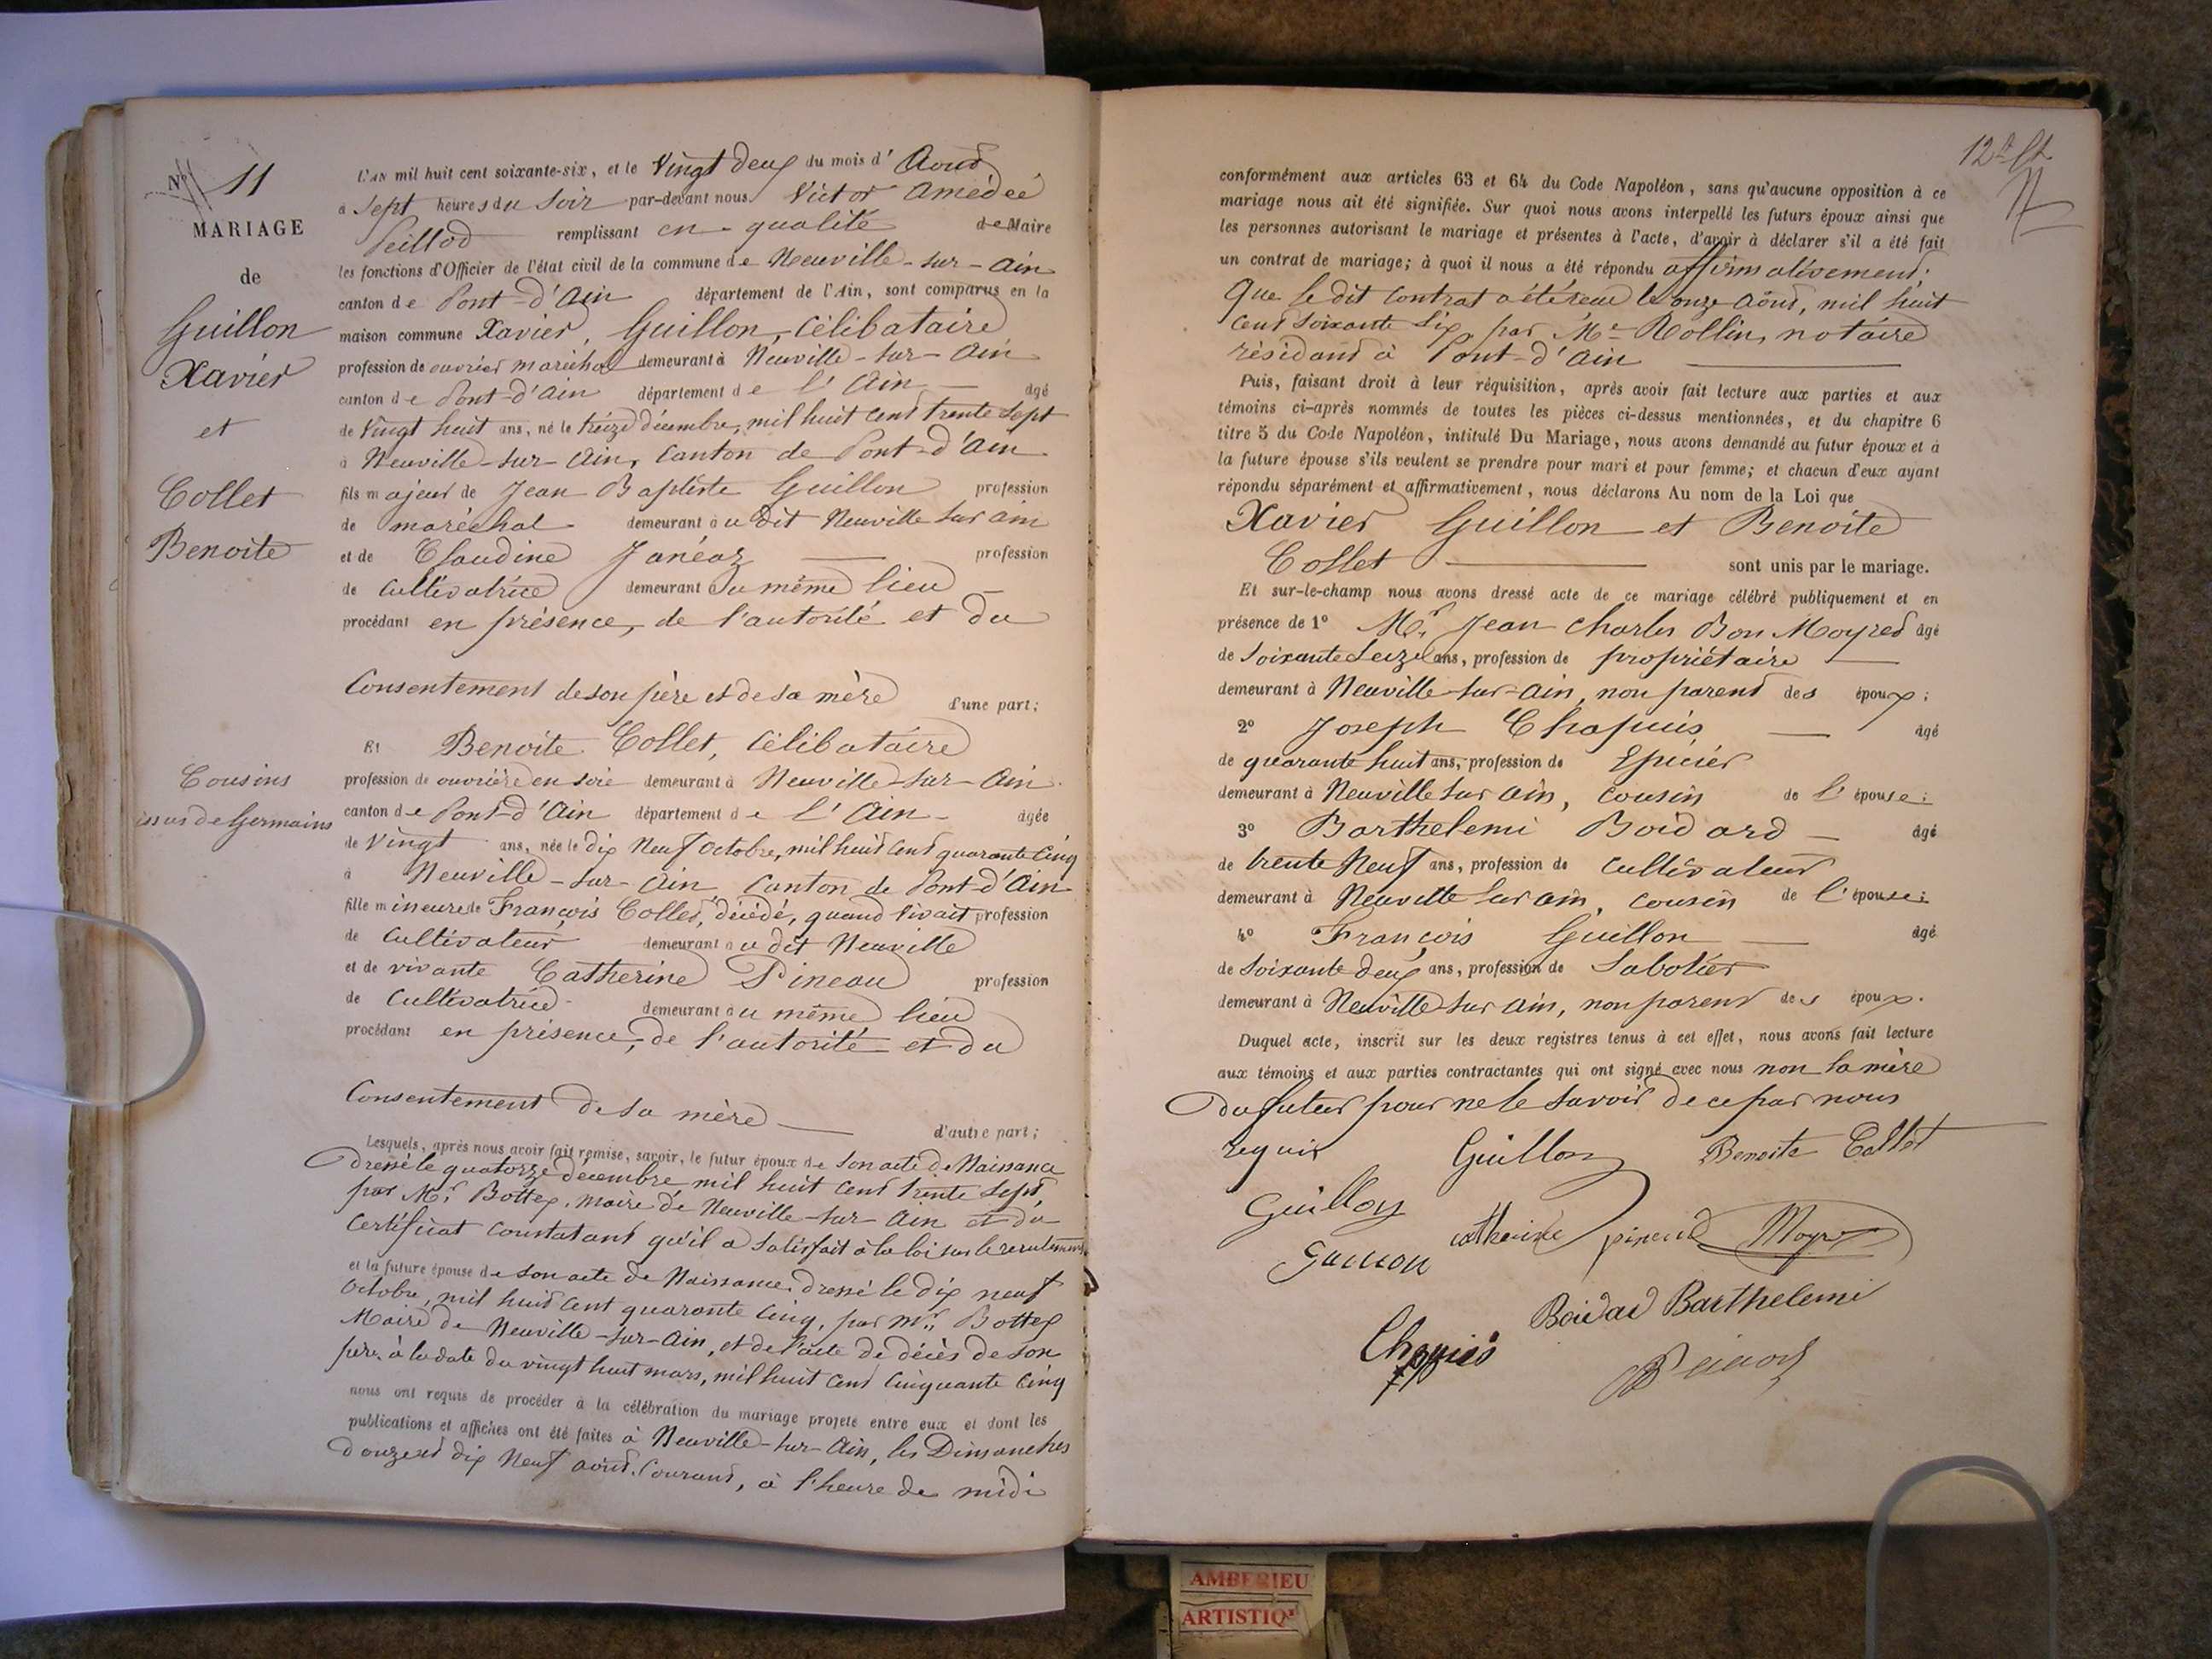 Nº 11
MARIAGE
de
Guillon
Xavier
et
Collet
Benoite
Cousins
issus de Germains
L'AN mil huit cent soixante-six, et le Vingt deux du mois d'Aout
à Sept heures du Soir par-devant nous Victor Amédée
Peillod remplissant en qualité de Maire
les fonctions d'Officier de l'état civil de la commune de Neuville-sur-Ain
canton de Pont-d'Ain département de l'Ain, sont comparus en la
maison commune Xavier, Guillon, Célibataire
profession de ouvrier maréchal demeurant à Neuville-sur-Ain
canton de Pont-d'Ain département de l'Ain âgé
de Vingt huit ans, né le treize décembre, mil huit cent trente sept
à Neuville-sur-Ain, Canton de Pont-d'Ain
fils majeur de Jean Baptiste Guillon profession
de maréchal demeurant au dit Neuville sur ain
et de Claudine Janéaz profession
de cultivatrice demeurant au même lieu
procédant en présence, de l'autorité et du
Consentement de son père et de sa mère d'une part;
Et Benoite Collet, Célibataire
profession de ouvrière en soie demeurant à Neuville-sur-Ain
canton de Pont-d'Ain département de l'Ain âgée
de Vingt ans, née le dix Neuf Octobre, mil huit cent quarante Cinq
à Neuville-sur-Ain Canton de Pont-d'Ain
fille mineure de François Collet, décédé, quand vivait profession
de Cultivateur demeurant au dit Neuville
et de vivante Catherine Pineau profession
de Cultivatrice demeurant au même lieu
procédant en présence, de l'autorité et du
Consentement de sa mère d'autre part;
Lesquels, après nous avoir fait remise, savoir, le futur époux de Son acte de Naissance
dressé le quatorze décembre mil huit cent trente Sept,
par Mr Bottex, maire de Neuville-sur-Ain et du
Certificat constatant qu'il a Satisfait à la loi sur le recrutement
et la future épouse de son acte de Naissance dressé le dix neuf
Octobre, mil huit cent quarante Cinq, par Mr Bottex
Maire de Neuville-sur-Ain, et de l'acte de décès de Son
père à la date du vingt huit mars, mil huit cent Cinquante Cinq
nous ont requis de procéder à la célébration du mariage projeté entre eux et dont les
publications et affiches ont été faites à Neuville-sur-Ain, les Dimanches
douze et dix Neuf août Courant, à l'heure de midi
conformément aux articles 63 et 64 du Code Napoléon, sans qu'aucune opposition à ce
mariage nous ait été signifiée. Sur quoi nous avons interpellé les futurs époux ainsi que
les personnes autorisant le mariage et présentes à l'acte, d'avoir à déclarer s'il a été fait
un contrat de mariage; à quoi il nous a été répondu affirmativement:
Que le dit contrat a été reçu le onze août, mil huit
cent soixante Six, par Me Rollin, notaire
résidant à Pont-d'Ain
Puis, faisant droit à leur réquisition, après avoir fait lecture aux parties et aux
témoins ci-après nommés de toutes les pièces ci-dessus mentionnées, et du chapitre 6
titre 5 du Code Napoléon, intitulé Du Mariage, nous avons demandé au futur époux et à
la future épouse s'ils veulent se prendre pour mari et pour femme; et chacun d'eux ayant
répondu séparément et affirmativement, nous déclarons Au nom de la Loi que
Xavier Guillon et Benoite
Collet sont unis par le mariage.
Et sur-le-champ nous avons dressé acte de ce mariage célébré publiquement et en
présence de 1º Mr Jean Charles Bon Moyret âgé
de Soixante Seize ans, profession de propriétaire
demeurant à Neuville-sur-Ain, non parent des époux;
2º Joseph Chapuis âgé
de quarante huit ans, profession de Epicier
demeurant à Neuville sur Ain, Cousin de l'épouse;
3º Barthelemi Boidard âgé
de trente Neuf ans, profession de cultivateur
demeurant à Neuville sur Ain, Cousin de l'épouse;
4º François Guillon âgé
de Soixante deux ans, profession de Sabotier
demeurant à Neuville sur Ain, non parent des époux.
Duquel acte, inscrit sur les deux registres tenus à cet effet, nous avons fait lecture
aux témoins et aux parties contractantes qui ont signé avec nous non la mère
du futur pour ne le savoir de ce par nous
requis Guillon Benoite Collet
Guillon
Catherine pineau Moyret
Guillon
Boidard Barthelemi
Chapuis
AMBERIEU
ARTISTIQ